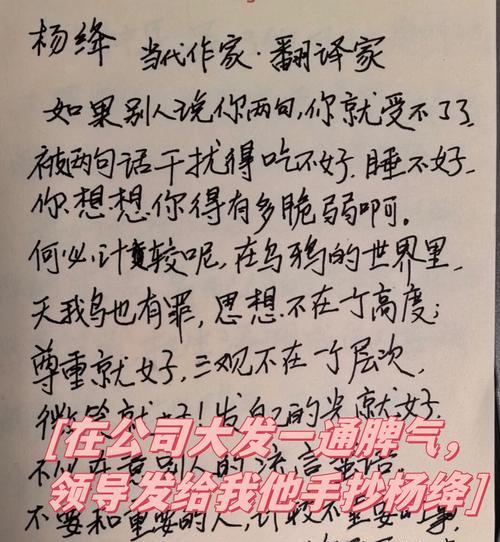 杨绛 当代作家·翻译家
如果别人说你两句,你就受不了.
被两句话干扰得吃不好.睡不好.
你想想你得有多脆弱啊。
何必计较呢,在乌鸦的世界里.
天鹅也有罪,思想不在一个高度;
尊重就好,三观不在一个层次,
微笑就好!发自己的光就好.
[在公司大发一通脾气,
别人的流言蜚语。
领导发给我他手抄杨绛]
不要和重要的人,计较不重要的事.